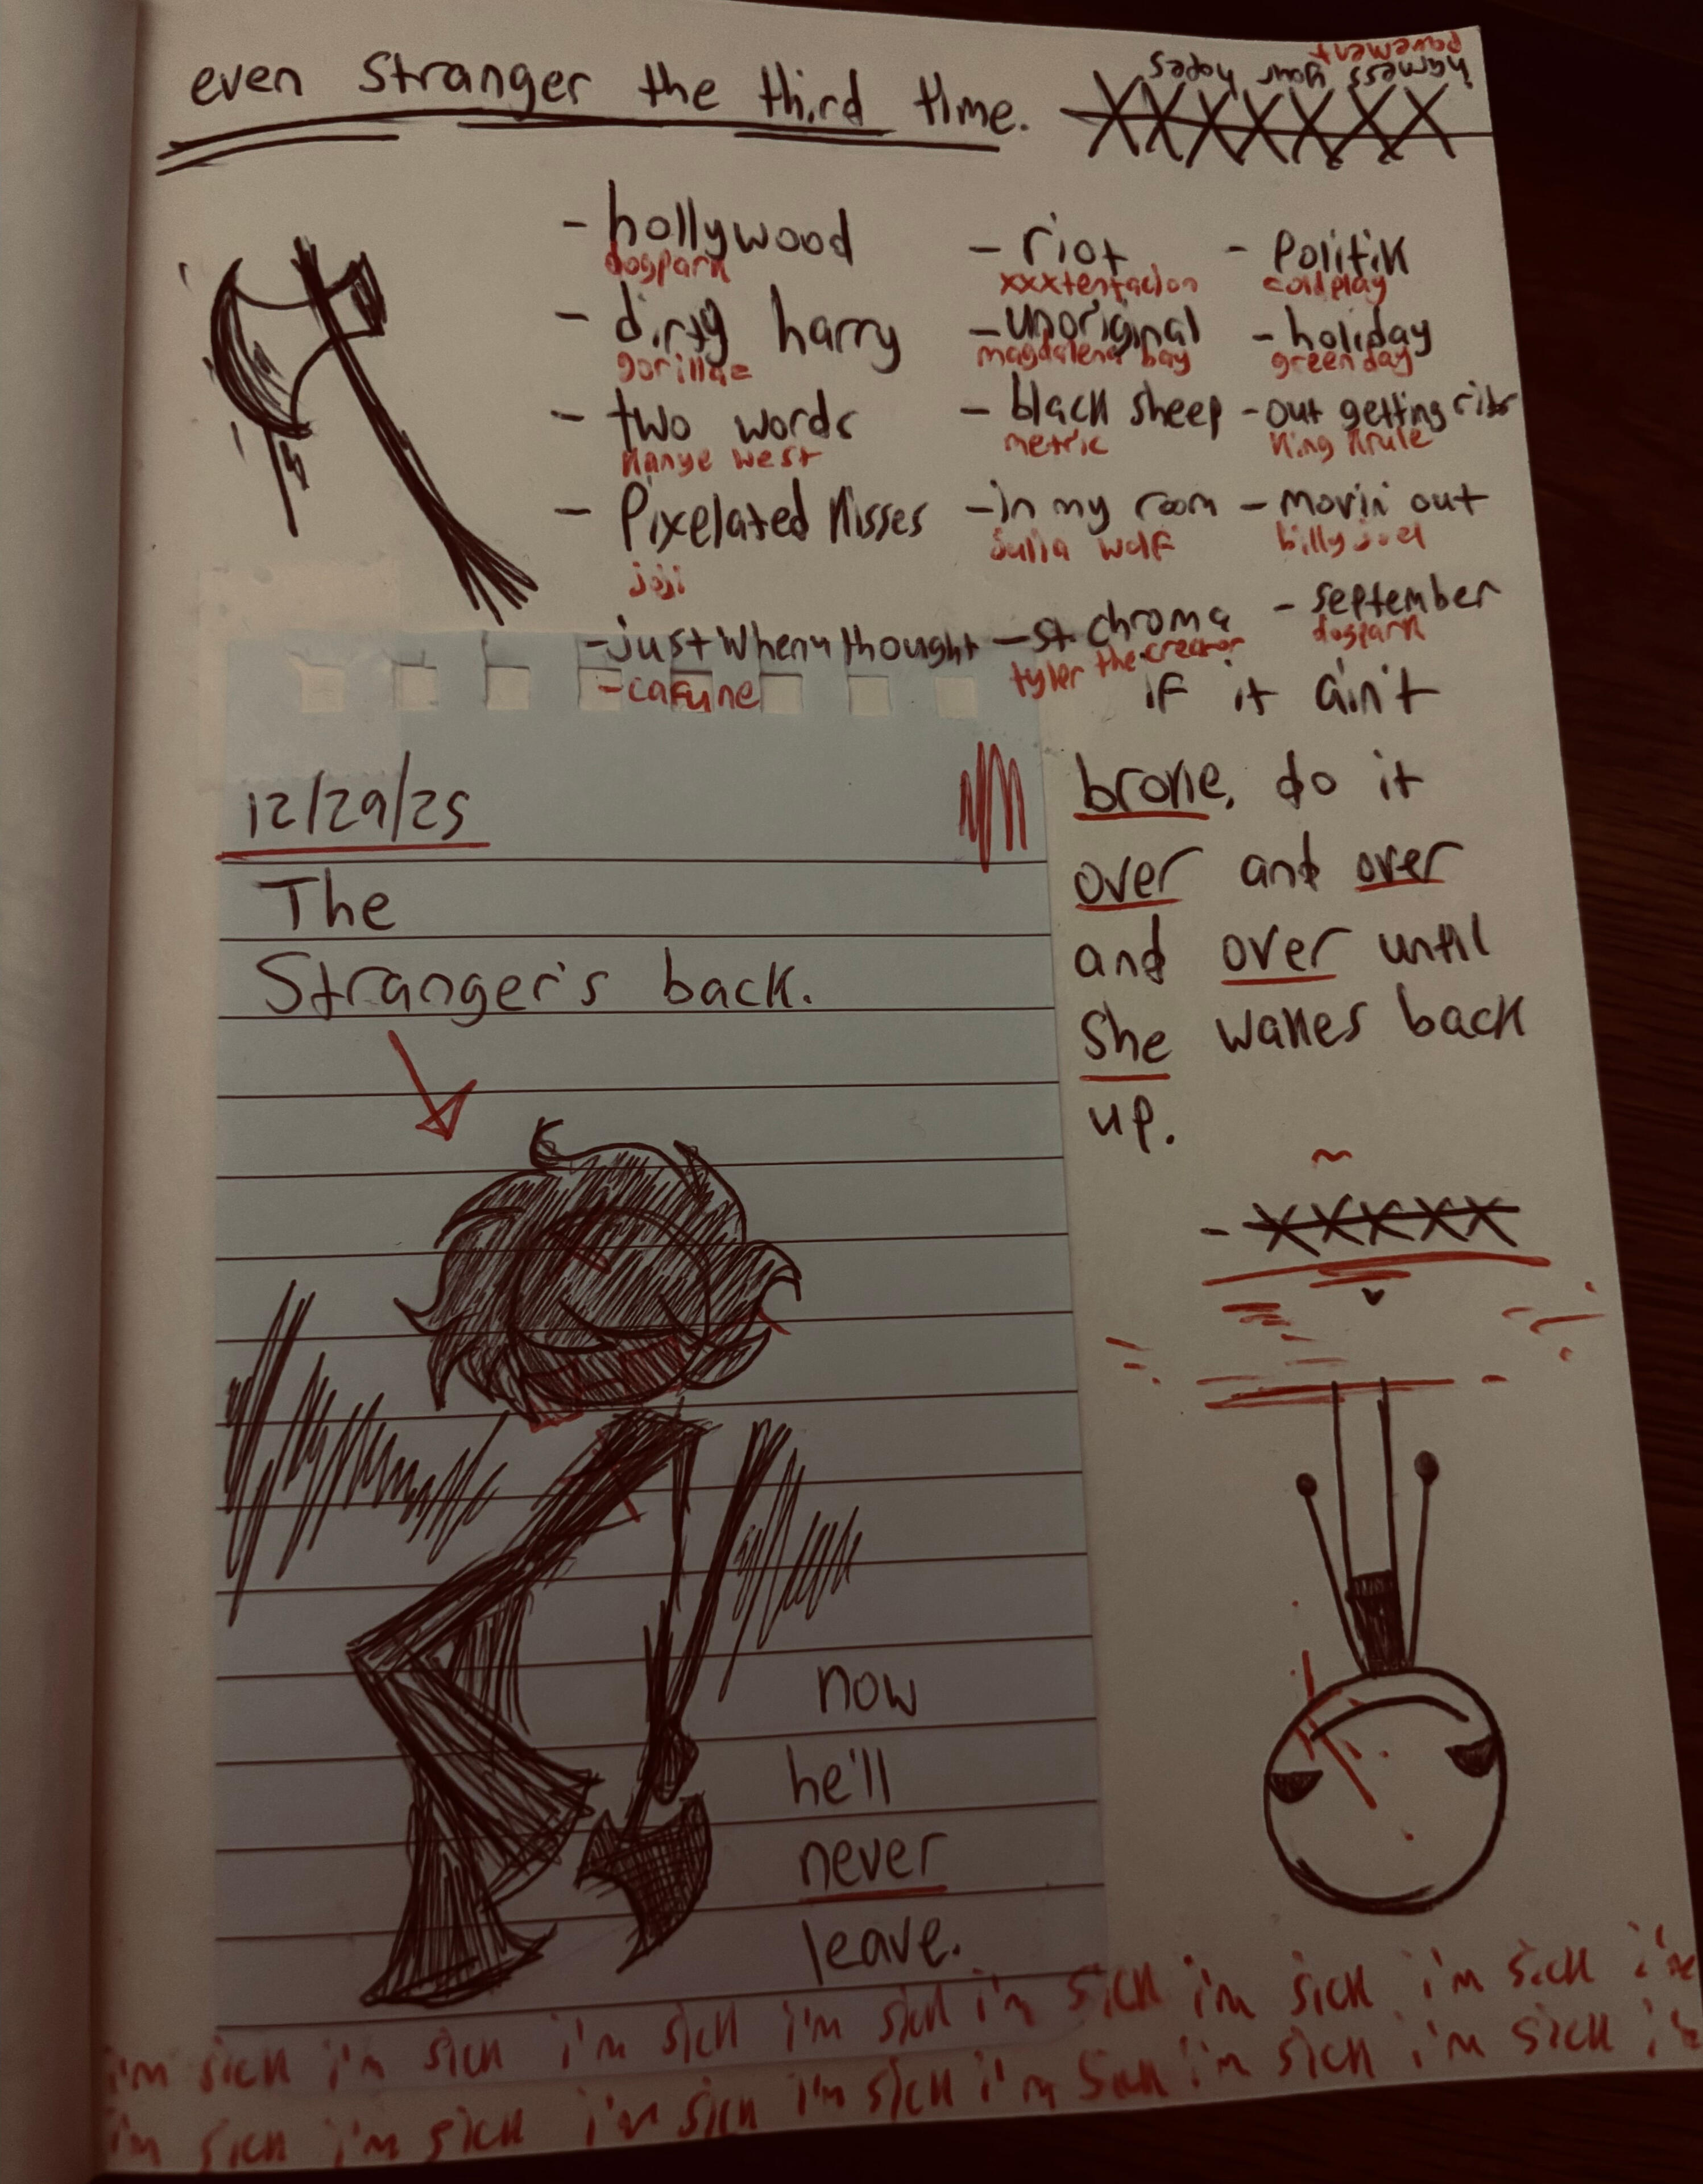 even stranger the third time.
harness your hopes
pavement
- hollywood
dogpark
- dirty harry
gorillaz
- two words
kanye west
- Pixelated kisses
joji
- just when u thought
- cafune
- riot
xxxtentacion
- unoriginal
magdalena bay
- black sheep
metric
- in my room
julia wolf
- st. chroma
tyler the creator
- Politik
coldplay
- holiday
green day
- out getting ribs
king krule
- movin' out
billy joel
- september
dogpark
if it ain't
broke, do it
over and over
and over until
she wakes back
up.
~
- xxxxx
12/29/25
The
Stranger's back.
now
he'll
never
leave.
i'm sick i'm sick i'm sick i'm sick i'm sick i'm sick i'm sick i'm
i'm sick i'm sick i'm sick i'm sick i'm sick i'm sick i'm sick i'm